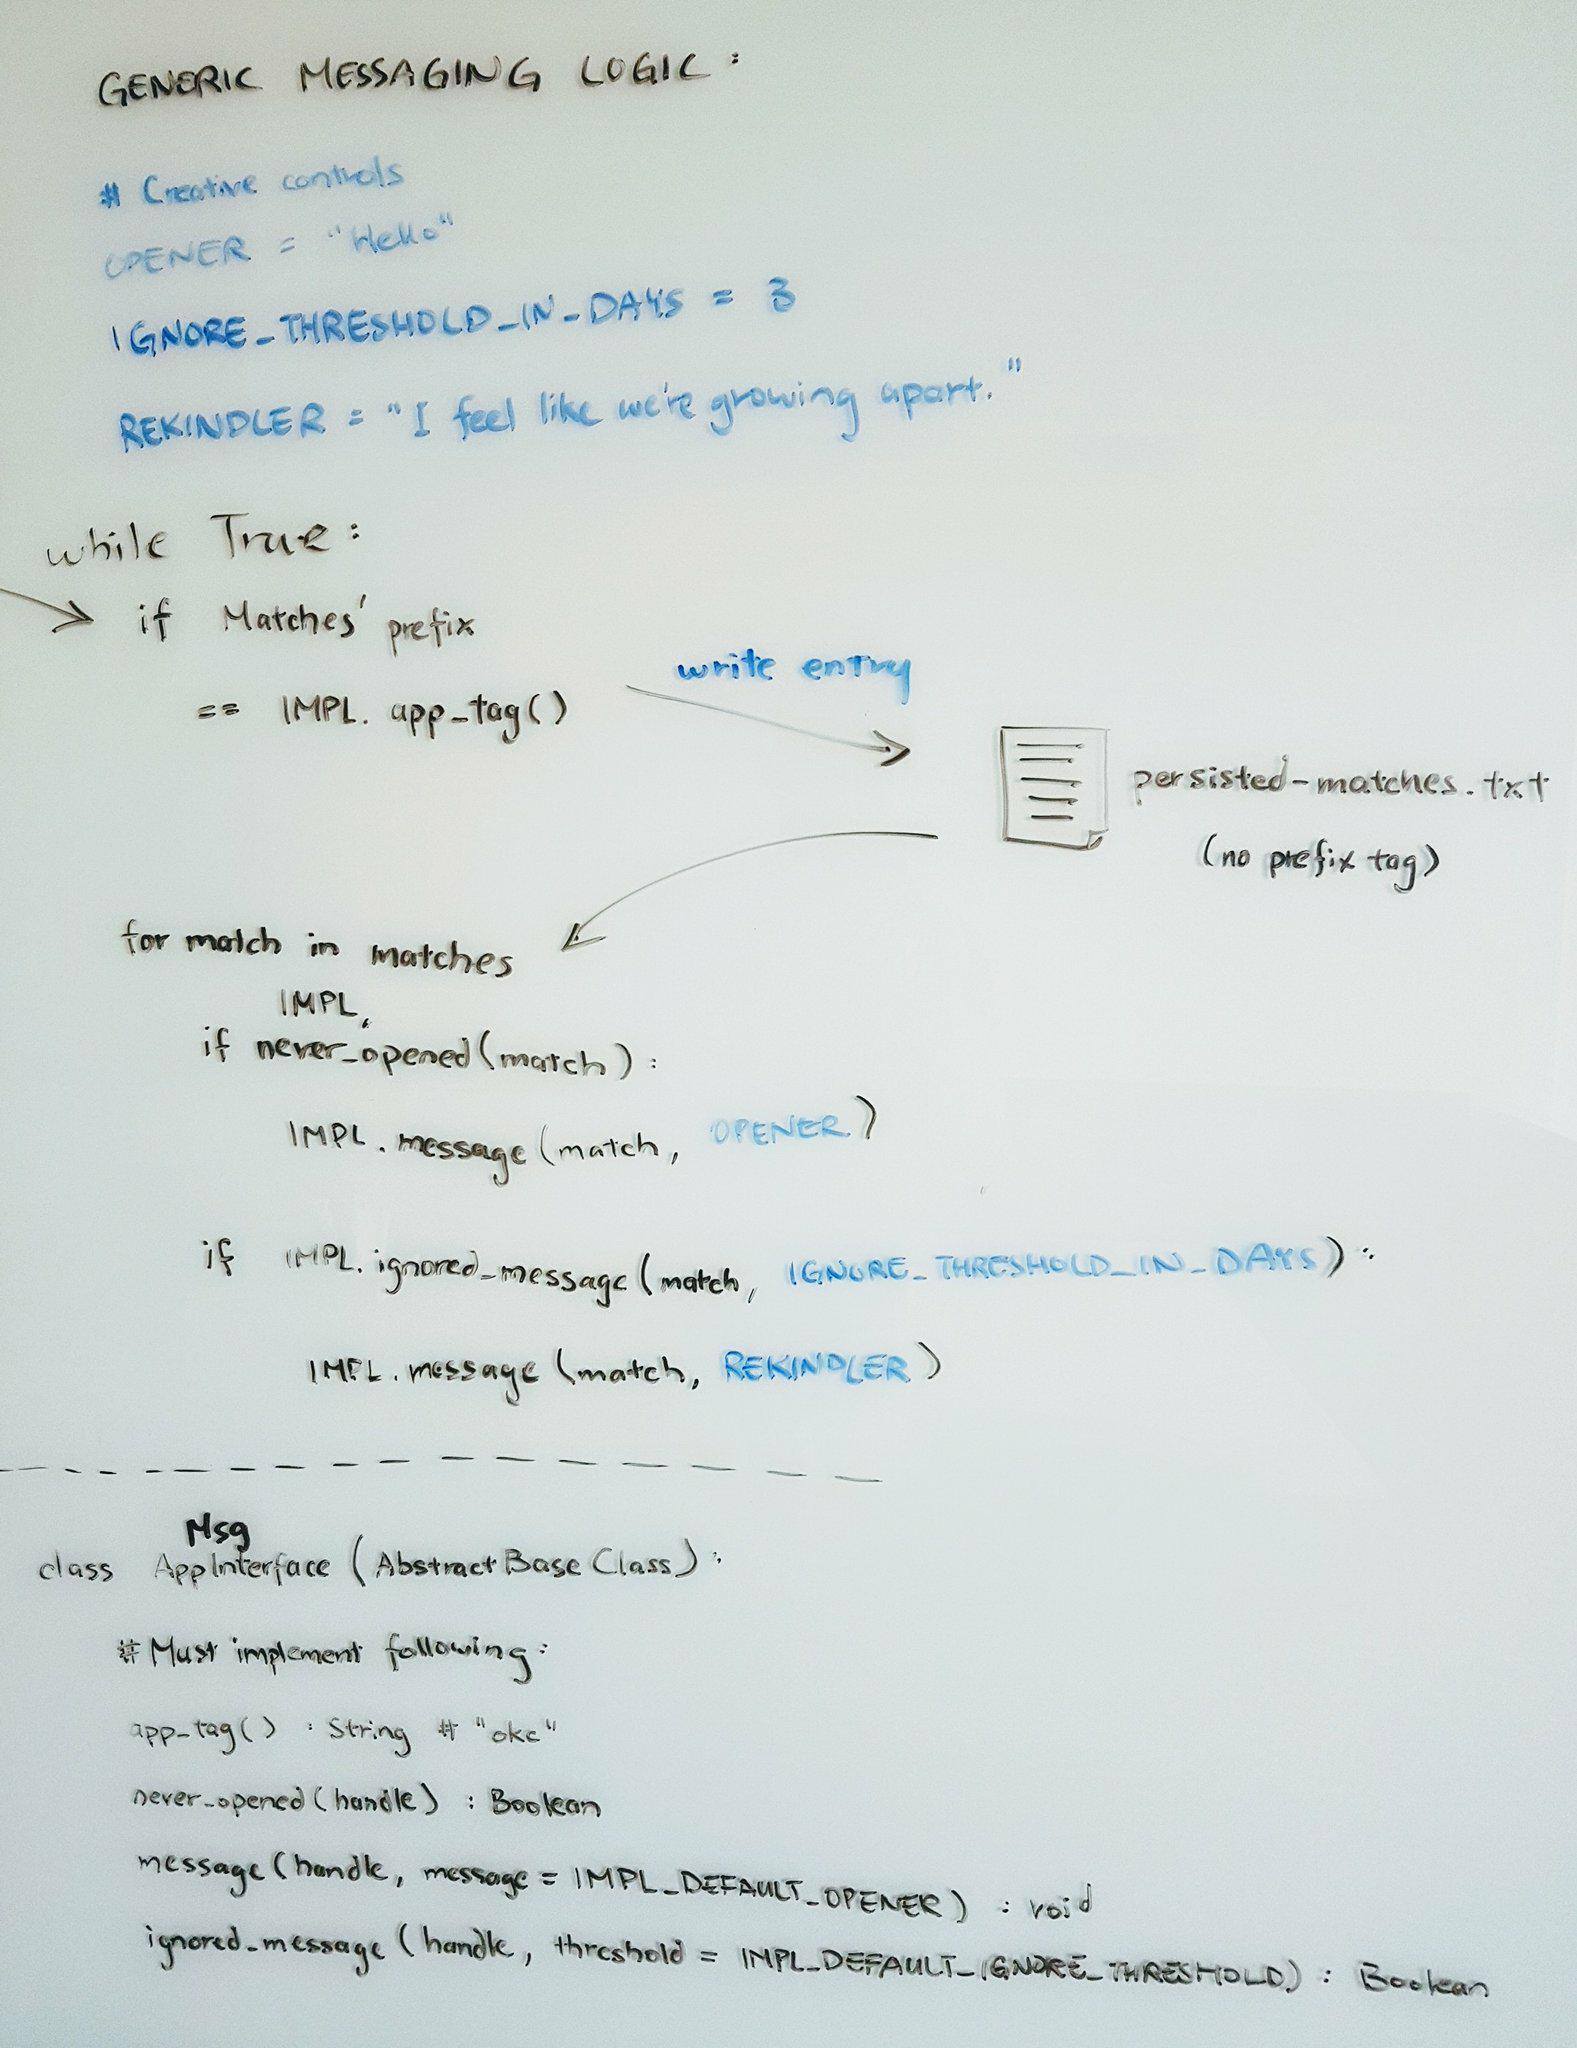 GENERIC MESSAGING LOGIC :
# Creative controls
OPENER = "Hello"
IGNORE_THRESHOLD_IN_DAYS = 3
REKINDLER = "I feel like we're growing apart."
while True :
if Matches' prefix
== IMPL. app_tag()
write entry
persisted-matches.txt
(no prefix tag)
for match in matches
IMPL.
if never_opened(match) :
IMPL.message(match, OPENER)
if IMPL.ignored_message(match, IGNORE_THRESHOLD_IN_DAYS) :
IMPL.message(match, REKINDLER)
Msg
class AppInterface (AbstractBaseClass) :
# Must implement following :
app_tag() : String # "okc"
never_opened(handle) : Boolean
message(handle, message = IMPL_DEFAULT_OPENER) : void
ignored_message(handle, threshold = IMPL_DEFAULT_IGNORE_THRESHOLD) : Boolean